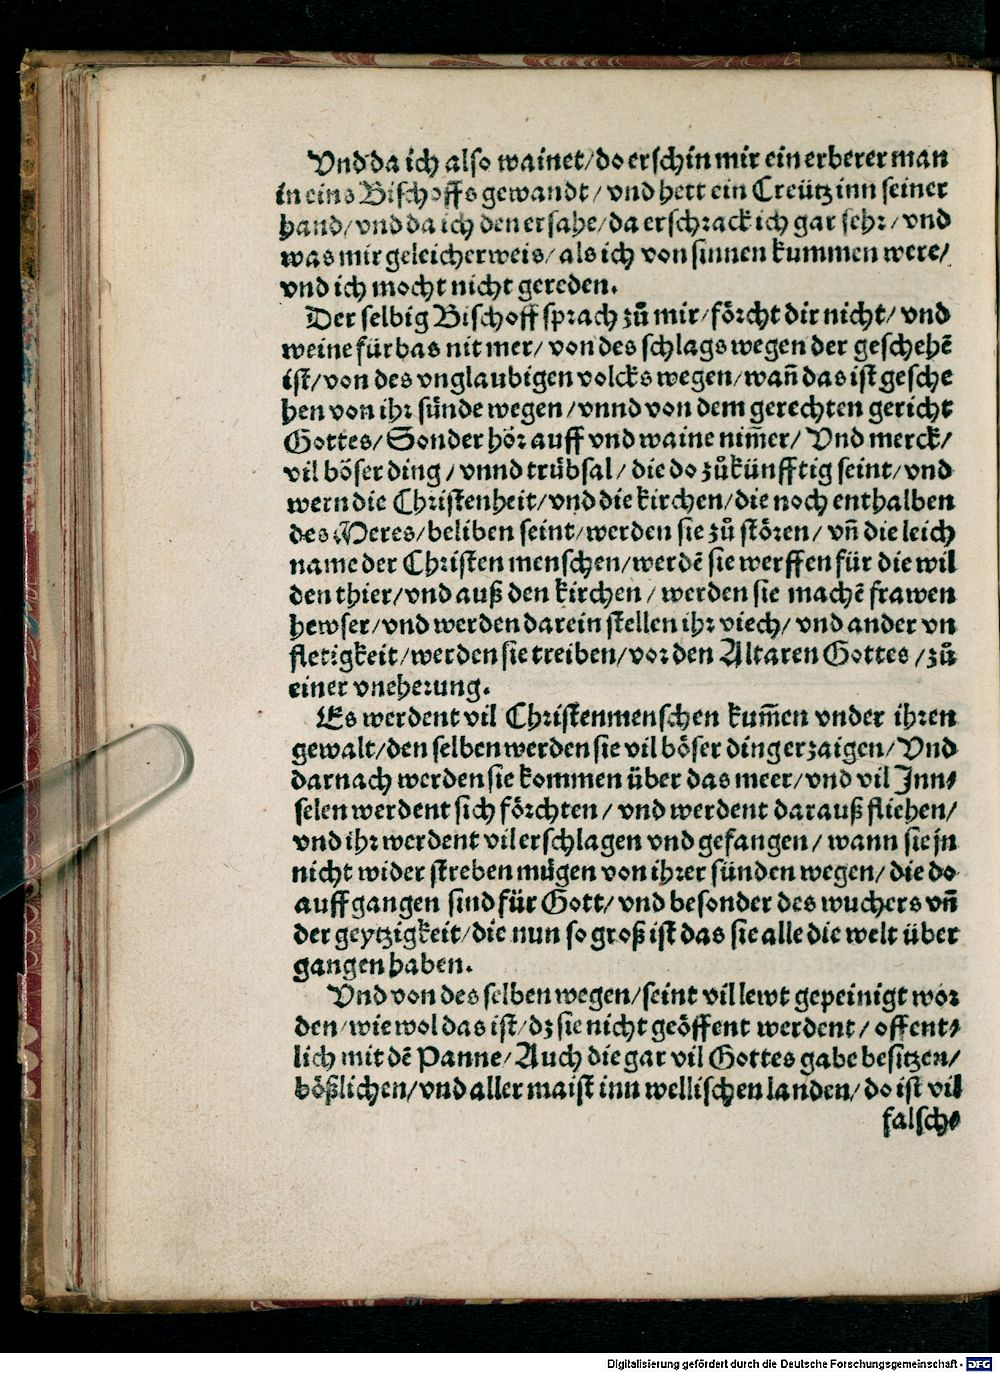 Vnd da ich also wainet/ do erschin mir ein erberer man
in eins Bischoffs gewandt/ vnd hett ein Creütz inn seiner
hand/ vnd da ich den ersahe/ da erschrack ich gar sehr/ vnd
was mir geleicher weis/ als ich von sinnen kummen were/
vnd ich mocht nicht gereden.
Der selbig Bischoff sprach zů mir/ förcht dir nicht/ vnd
weine fürbas nit mer/ von des schlags wegen der geschehē
ist/ von des vnglaubigen volcks wegen/ wañ das ist gesche
hen von ihr sünde wegen/ vnnd von dem gerechten gericht
Gottes/ Sonder hör auff vnd waine nim̄er/ Vnd merck/
vil böser ding/ vnnd trübsal/ die do zůkünfftig seint/ vnd
wern die Christenheit/ vnd die kirchen/ die noch enthalben
des Meres/ beliben seint/ werden sie zů stören/ vñ die leich
name der Christen menschen/ werdē sie werffen für die wil
den thier/ vnd auß den kirchen/ werden sie machē frawen
hewser/ vnd werden darein stellen ihr viech/ vnd ander vn
fletigkeit/ werden sie treiben/ vor den Altaren Gottes/ zů
einer vneherung.
Es werdent vil Christenmenschen kum̄en vnder ihren
gewalt/ den selben werden sie vil böser ding erzaigen/ Vnd
darnach werden sie kommen über das meer/ vnd vil Inn⸗
selen werdent sich förchten/ vnd werdent darauß fliehen/
vnd ihr werdent vil erschlagen vnd gefangen/ wann sie jn
nicht wider streben mügen von ihrer sünden wegen/ die do
auffgangen sind für Gott/ vnd besonder des wuchers vñ
der geytzigkeit/ die nun so groß ist das sie alle die welt über
gangen haben.
Vnd von des selben wegen/ seint vil lewt gepeinigt wor
den/ wie wol das ist/ dz sie nicht geöffent werdent/ offent⸗
lich mit dē Panne/ Auch die gar vil Gottes gabe besitzen/
bößlichen/ vnd aller maist inn wellischen landen/ do ist vil
falsch⸗
Digitalisierung gefördert durch die Deutsche Forschungsgemeinschaft - DFG